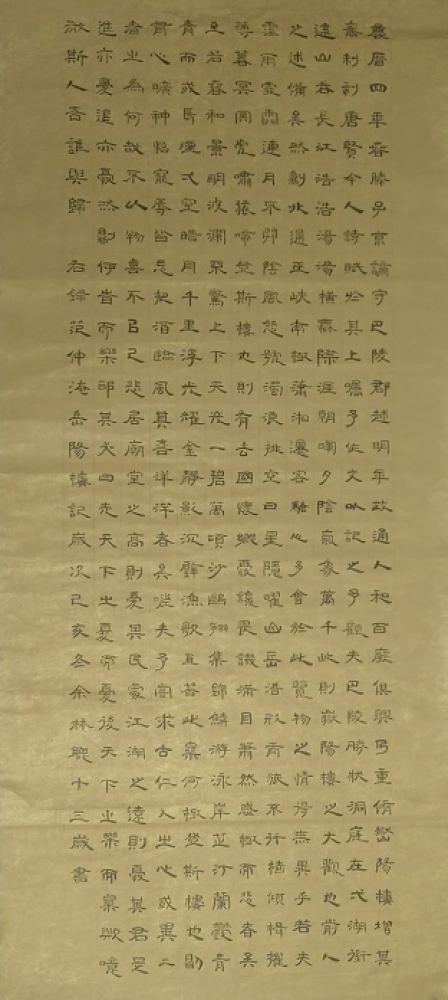 慶曆四年春滕子京謫守巴陵郡越明年政通人和百廢俱興乃重脩岳陽樓增其
舊制刻唐賢今人詩賦於其上囑予作文以記之予觀夫巴陵勝狀洞庭在弌湖銜
遠山吞長江浩浩湯湯橫無際涯朝暉夕陰氣象萬千此則嶽陽樓之大觀也前人
之述備矣然則北通巫峽南極瀟湘遷客騷人多會於此覽物之情得無異乎若夫
霪雨霏霏連月不開陰風怒號濁浪排空日星隱曜山岳潛形商旅不行檣傾楫摧
薄暮冥冥虎嘯猿啼登斯樓也則有去國懷鄉憂讒畏譏滿目蕭然感極而悲者矣
至若春和景明波瀾不驚上下天光一碧萬頃沙鷗翔集錦鱗游泳岸芷汀蘭青
青而或長煙弌空晧月千里浮光耀金靜影沉璧漁歌互答此樂何極登斯樓也則
有心曠神怡寵辱皆忘把酒臨風其喜洋洋者矣嗟夫予嘗求古仁人之心或異二
者之為何哉不以物喜不以己悲居廟堂之高則憂其民處江湖之遠則憂其君是
進亦憂退亦憂然則何時而樂邪其必曰先天下之憂而憂後天下之樂而樂歟噫
微斯人吾誰與歸 右錄范仲淹岳陽樓記歲次己亥冬余林聰十三歲書